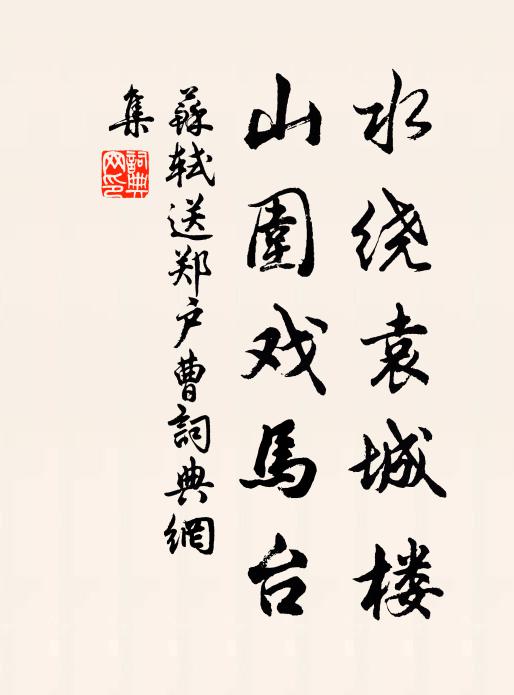 水绕袁城楼
山圍戏馬台
蘇轼送郑户曹詞典網
集
詞典网印